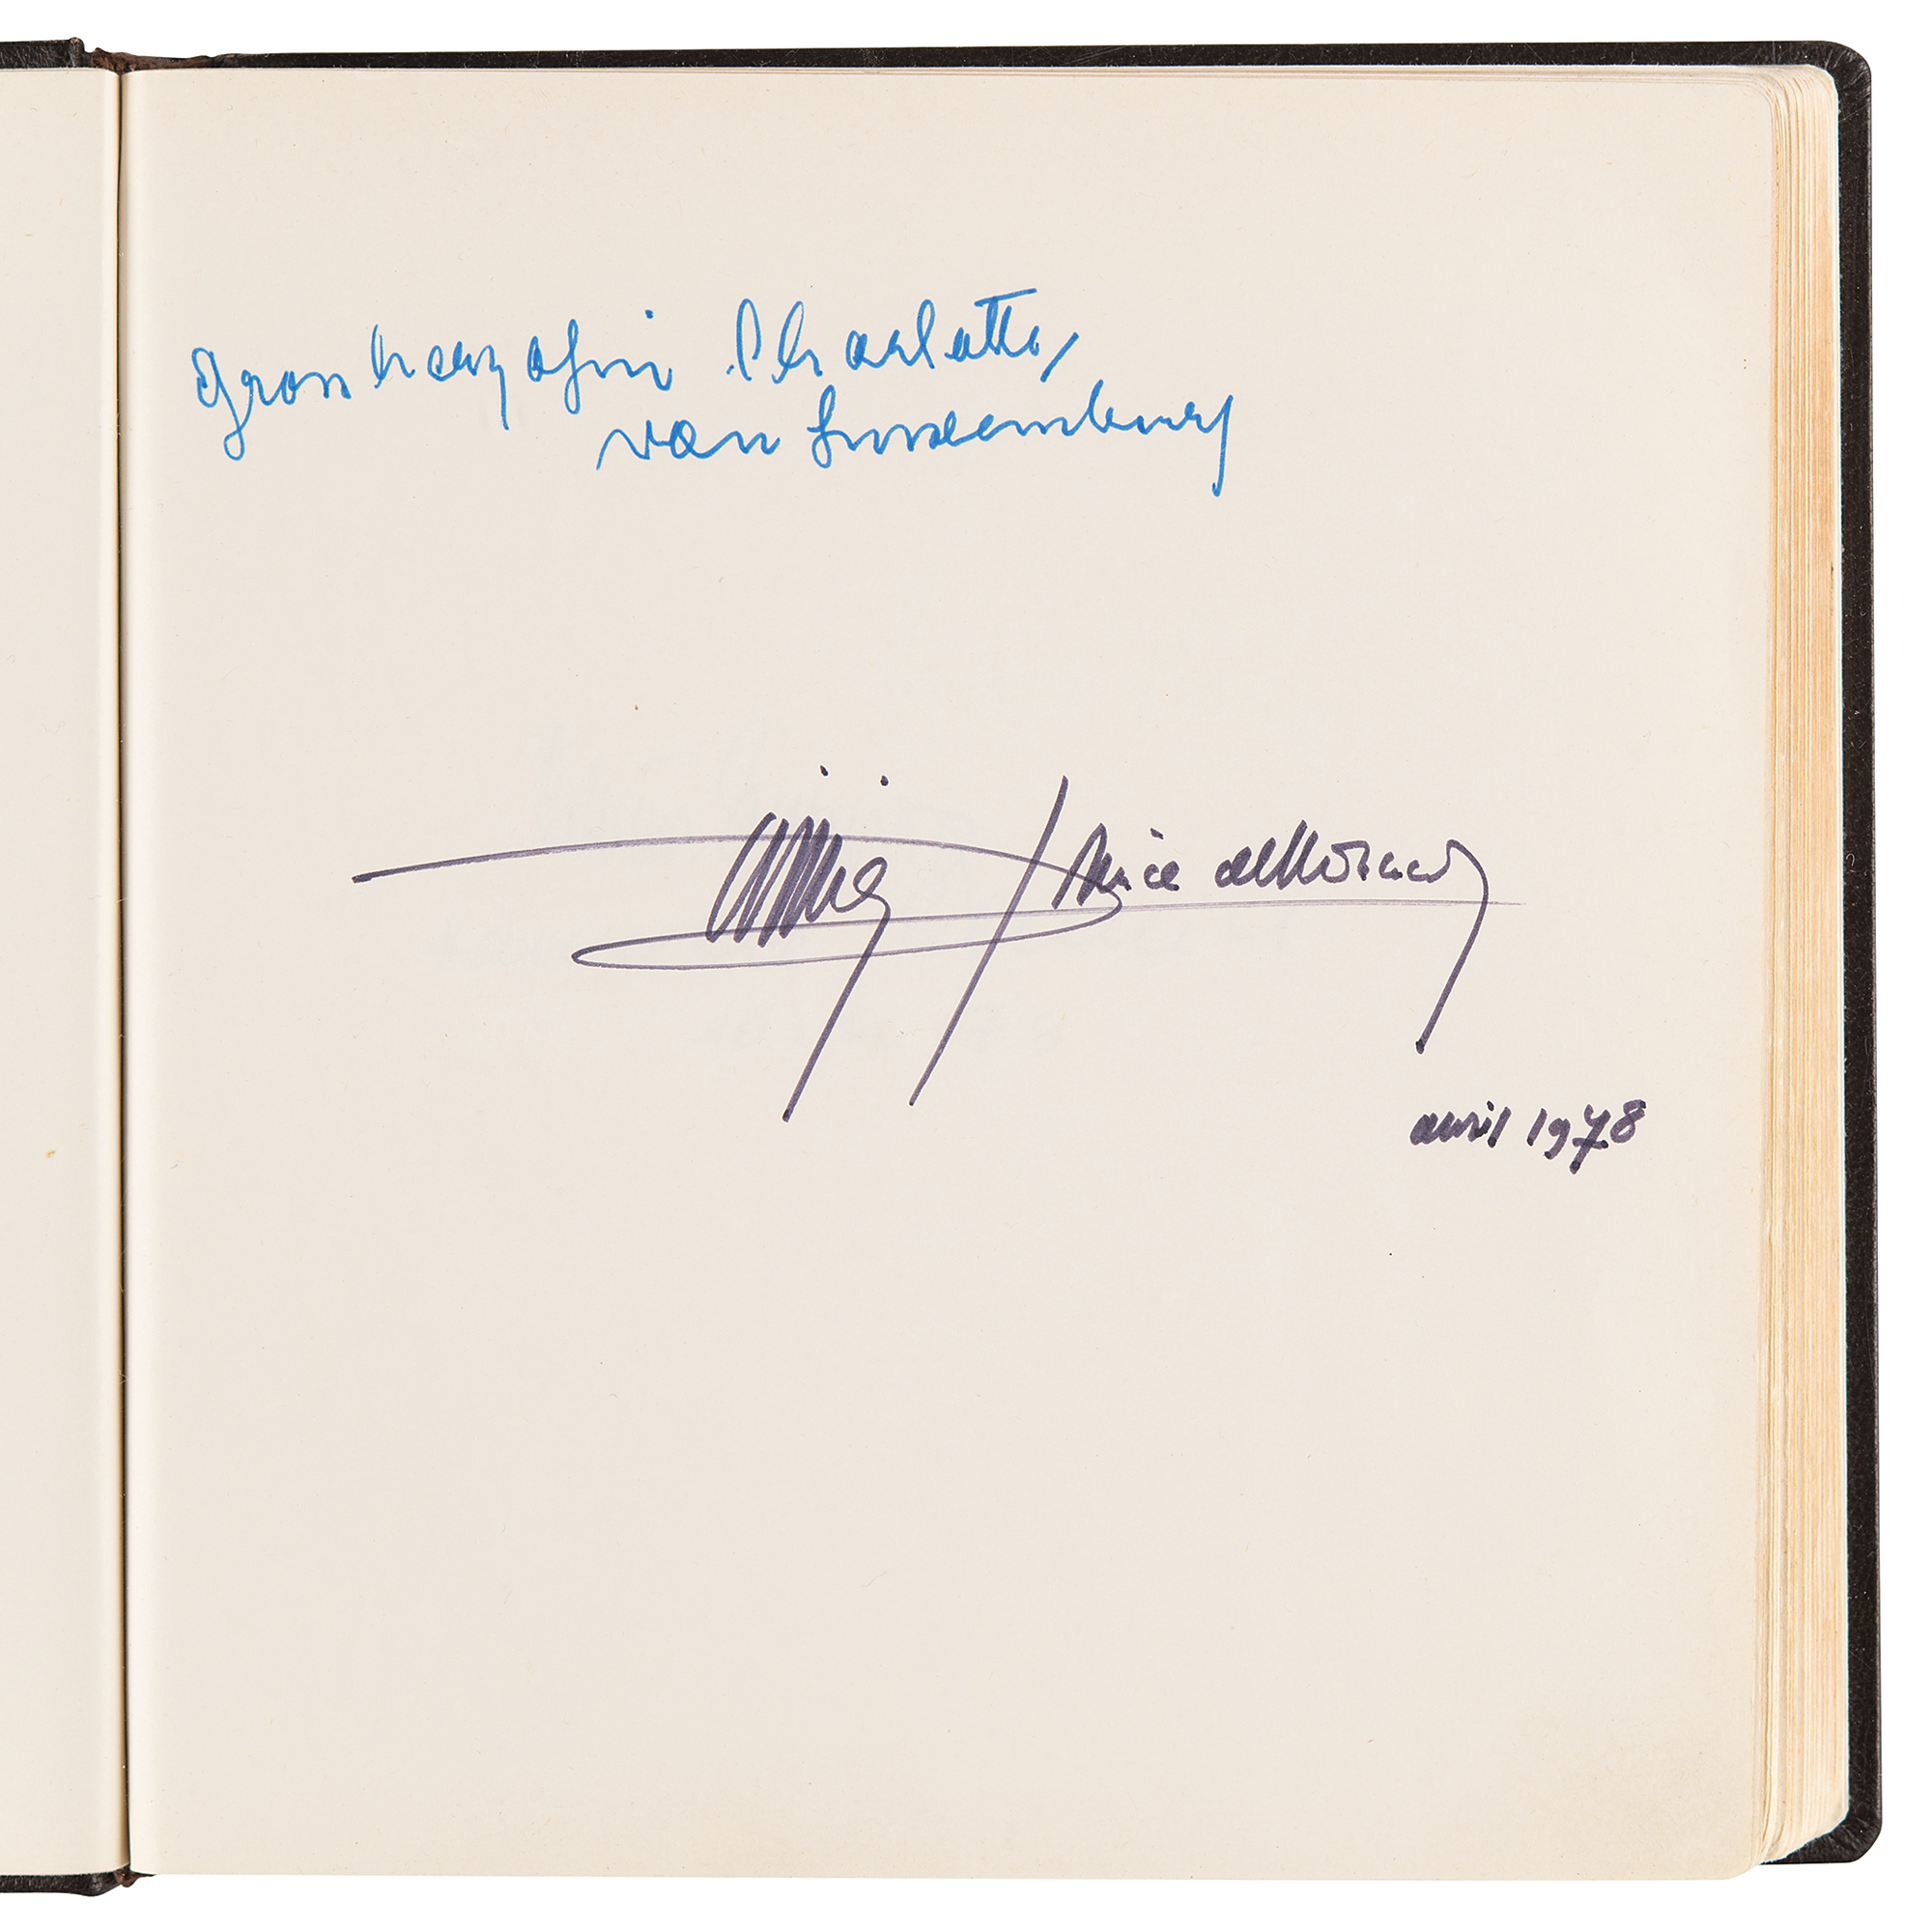 Grossherzogin Charlotte,
van Luxemburg
Prince de Monaco
avril 1978